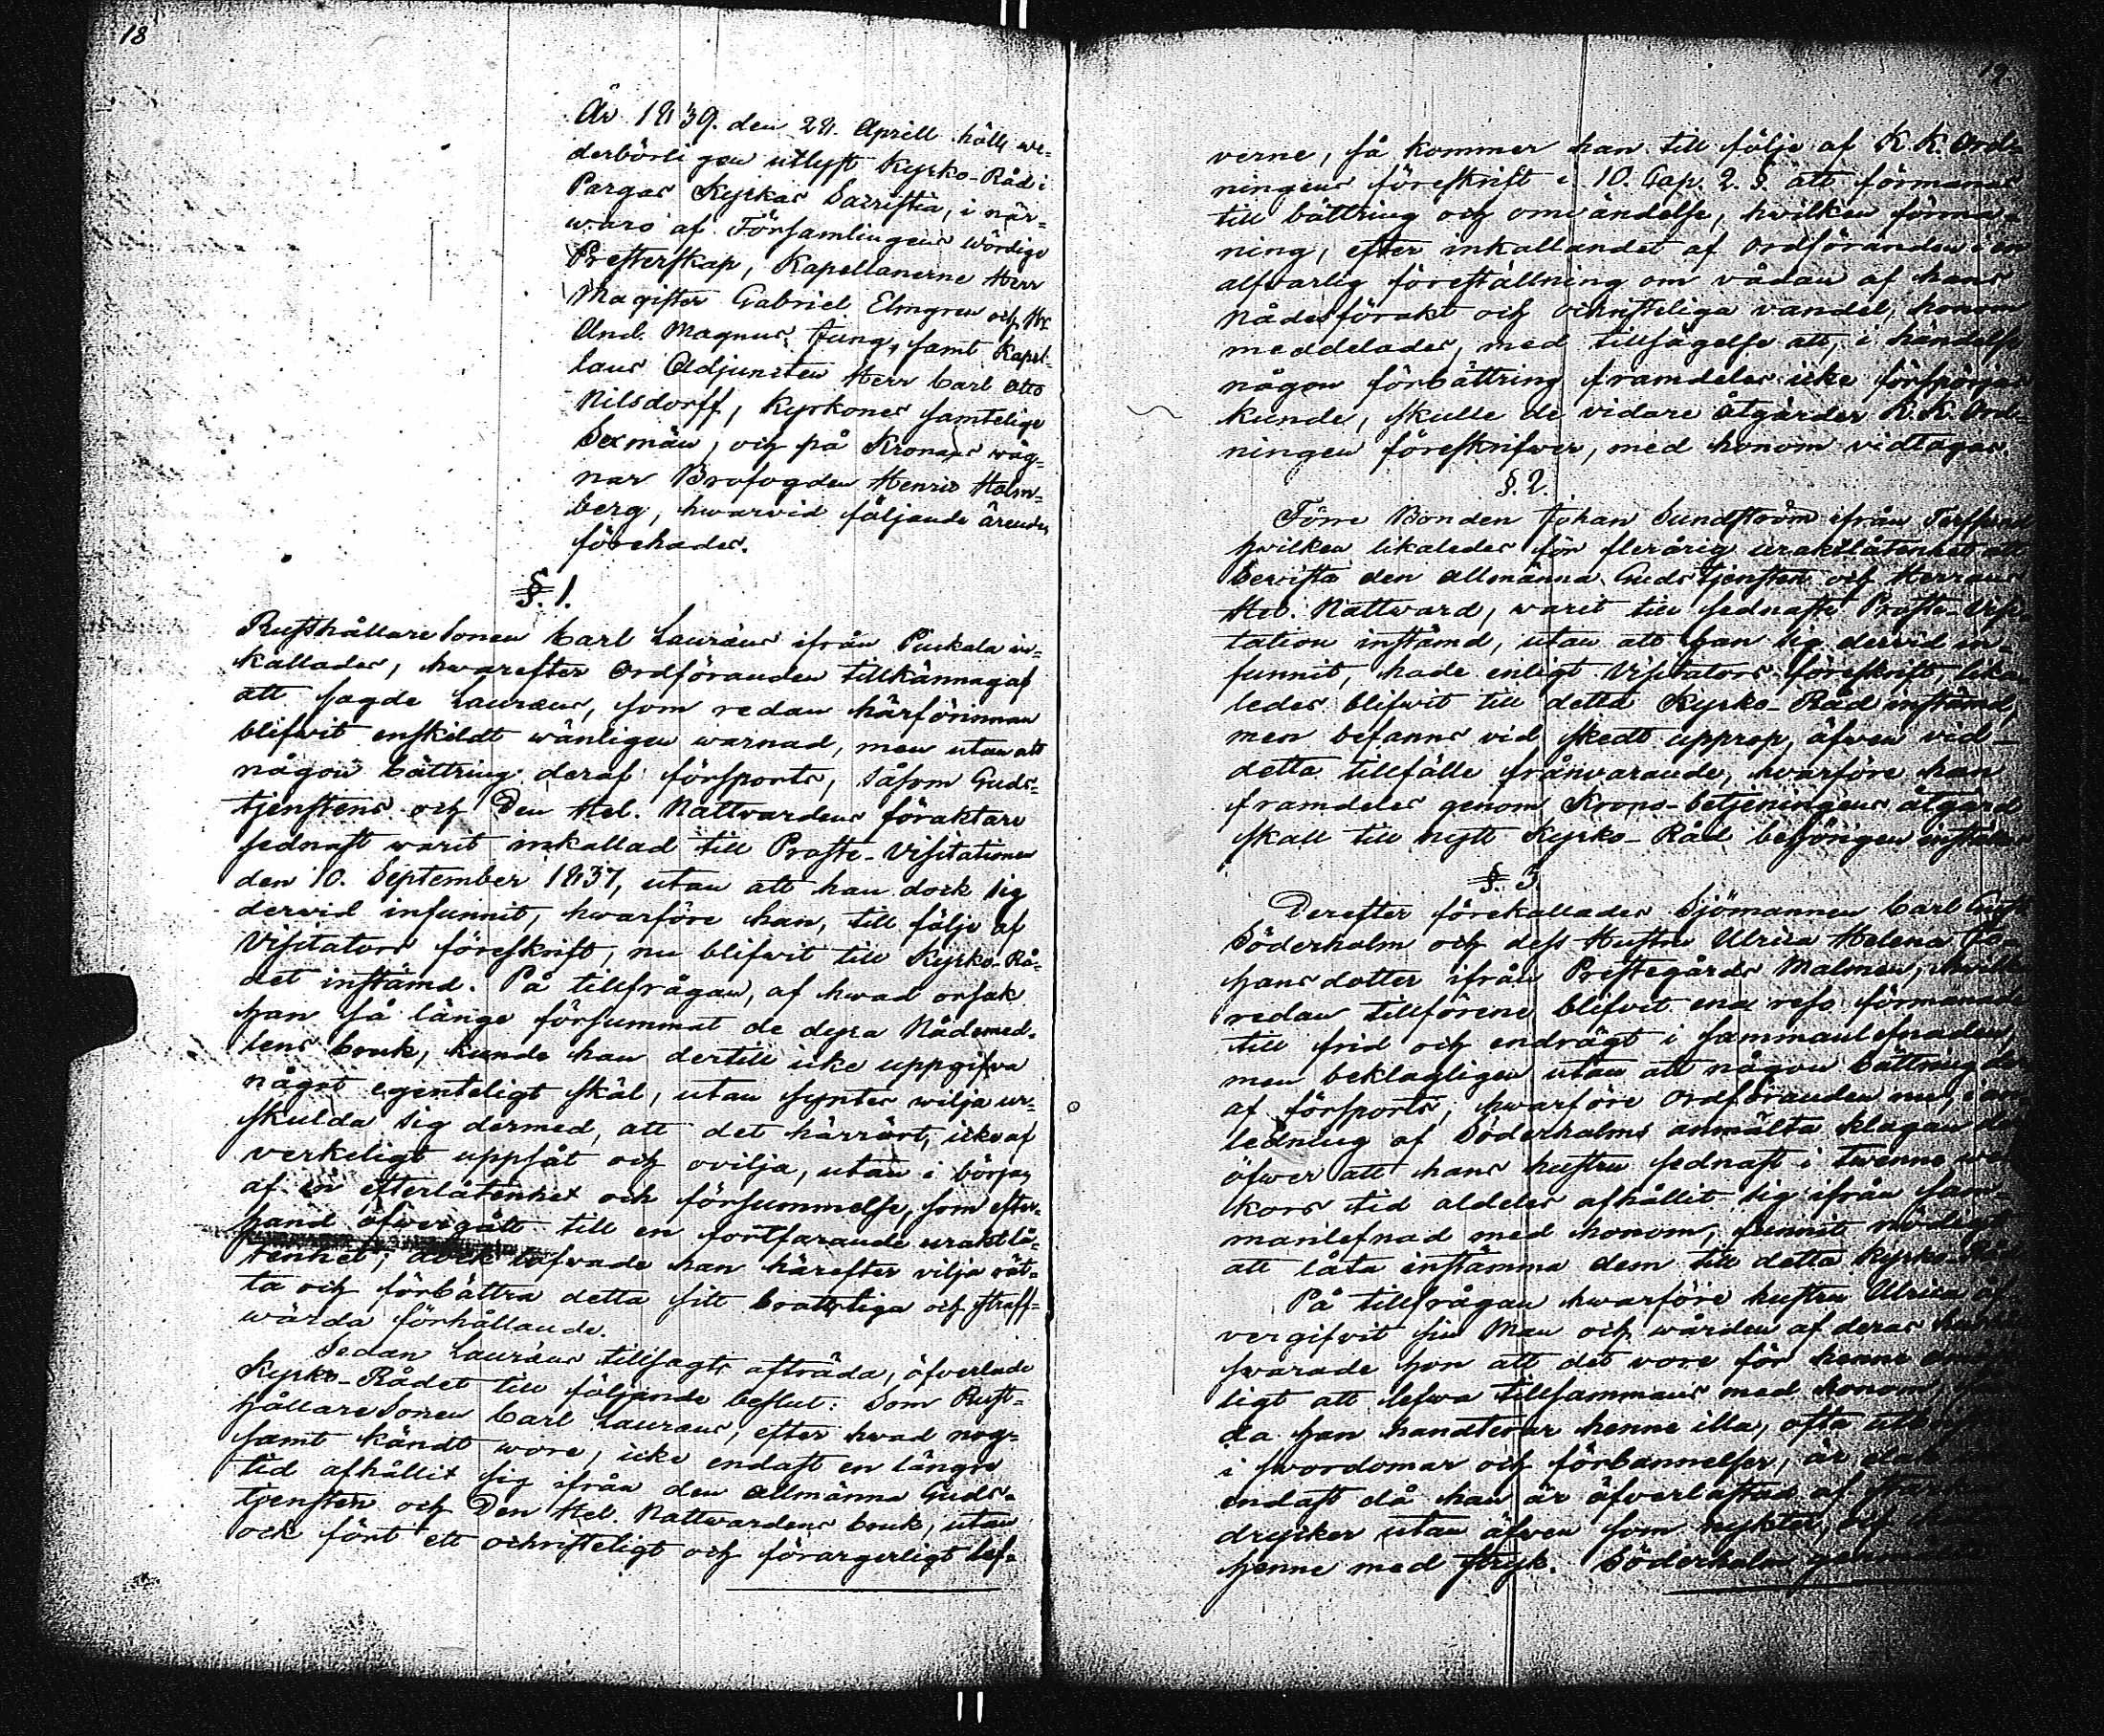 18
År 1839. den 28. Aprill hölls we-
derbörligen utlyst Kyrko-Råd i
Pargas Kyrkas Sacristia, i när-
waro af Församlingens wördige
Presterskap, Kapellanerne Herr
Magister Gabriel Elmgren och Hr
And. Magnus Jung, samt Kapel-
lans Adjuncten Herr Carl Otto
Nilsdorff, Kyrkones samtelige
Sexmän, och på Kronans wäg-
nar Brofogden Henric Holm-
berg, hwarvid följande ärenden
förehades.
§. 1.
Rusthållare Sonen Carl Lauræus ifrån Pinkala in-
kallades, hwarefter Ordföranden tillkännagaf
att sagde Lauræus, som redan härförinnan
blifwit enskildt wänligen warnad, men utan att
någon bättring deraf försports, såsom Guds-
tjenstens och Den Hel. Nattvardens föraktare
sednast warit inkallad till Proste-Visitationen
den 10. September 1837, utan att han dock sig
dervid infunnit, hwarföre han, till följe af
Visitators föreskrift, nu blifwit till Kyrko-Rå-
det instämd. På tillfrågan, af hwad orsak
han så länge försummat de dyra Nådemed-
lens bruk, kunde han dertill icke uppgifva
något egenteligt skäl, utan syntes wilja ur-
skulda sig dermed, att det härrört, icke af
verkeligt uppsåt och ovilja, utan i början
af en efterlåtenhet och försummelse, som efter-
hand öfvergått till en fortfarande uraktlå-
tenhet; dock lofvade han härefter vilja rät-
ta och förbättra detta sitt brottsliga och straff-
wärda förhållande.
Sedan Lauræus tillsagts afträda, öfverlade
Kyrko-Rådet till följande beslut: Som Rust-
hållare Sonen Carl Lauræus, efter hwad nog-
samt kändt wore, icke endast en längre
tid afhållit sig ifrån den allmänna Guds-
tjensten och Den Hel. Nattwardens bruk, utan
ock fört ett ochristeligt och förargerligt lef-
19
verne, så kommer han till följe af K. K. Ord-
ningens föreskrift i 10. Cap. 2. §. att förmanas
till bättring och omvändelse, hvilken förma-
ning, efter inkallandet af Ordföranden i en
alfvarlig föreställning om vådan af hans
Nådesförakt och ochristeliga vandel, honom
meddelades, med tillsägelse att, i händelse
någon förbättring framdeles icke förspörjas
kunde, skulle de vidare åtgärder K. K. Ord-
ningen föreskrifwer, med honom vidtagas.
§. 2.
Förre Bonden Johan Sundström ifrån
hvilken likaledes för flerårig uraktlåtenhet att
bevista den allmänna Gudstjensten och Herrans
Hel. Nattward, warit till sednaste Proste-Visi-
tation instämd, utan att han sig dervid in-
funnit, hade enligt Visitators föreskrift, lika-
ledes blifwit till detta Kyrko-Råd instämd,
men befanns vid skedt upprop, äfven vid
detta tillfälle frånvarande, hwarföre han
framdeles genom Krono-betjeningens åtgärd
skall till nytt Kyrko-Råd behörigen instämas
§. 3.
Derefter förekallades Sjömannen Carl
Söderholm och dess Hustru Ulrica Helena Jo-
hansdotter ifrån Prestegårds Malmen, hwilka
redan tillförene blifvit ena reso förmanade
till frid och endrägt i sammanlefnaden,
men beklagligen utan att någon bättring der-
af försports, hwarföre Ordföranden nu, i an-
ledning af Söderholms anmälta klagan der-
öfwer att hans hustru sednast i twenne wec-
kors tid aldeles afhållit sig ifrån sam-
manlefnad med honom, funnit nödigt
att låta instämma dem till detta Kyrko-Råd
På tillfrågan hwarföre hustru Ulrica öf-
vergifvit sin Man och wården af deras
swarade hon att det vore för henne
ligt att lefwa tillsammans med honom,
da han handterar henne illa, ofta
i swordomar och förbannelser, är elak
endast då han är öfverlastad af stark
drycker utan äfven som nykter, och
henne med stryk. Söderholm